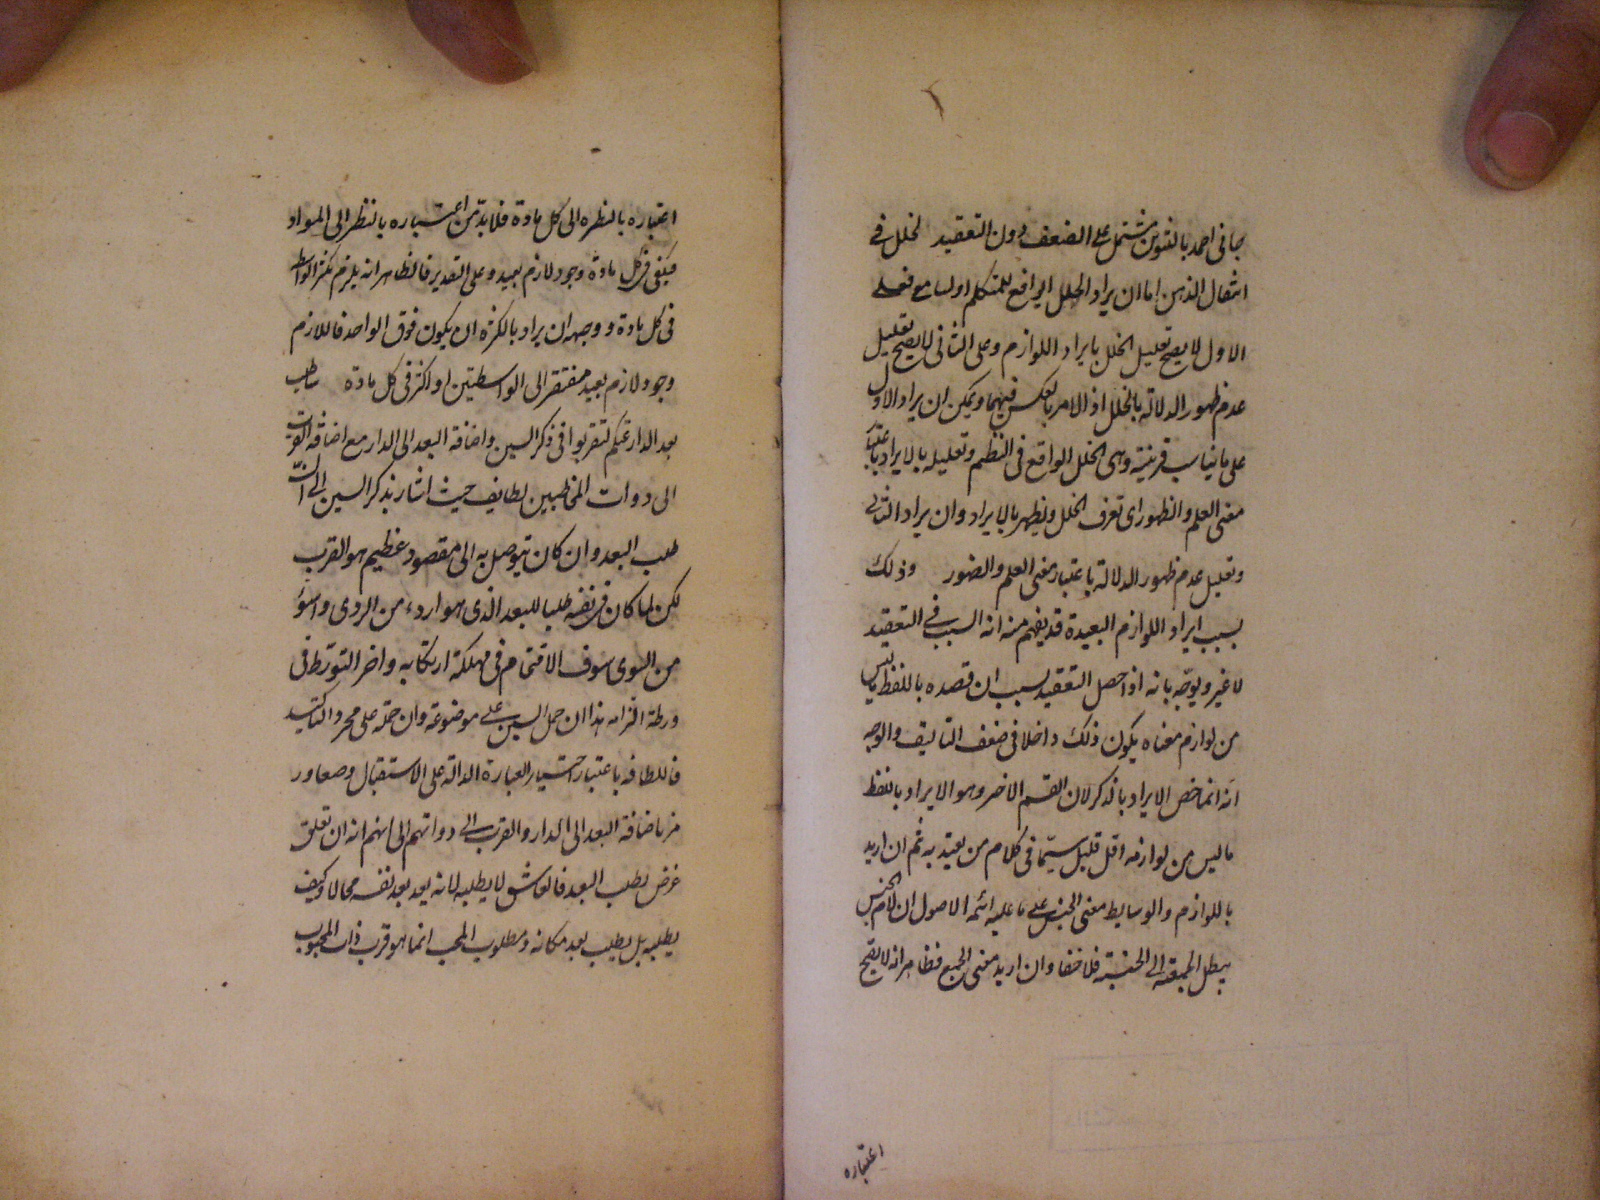 جاانى احمد بالتنوين مشتمل على الضعف دون التعقيد لخلل فى
انتقال الذهن اما ان يراد الخلل الواقع للمتكلم او لسامع فعلى
الاول لا يصح تعليل الخلل بايراد اللوازم وعلى الثانى لا يصح تعليل
عدم ظهور الدلالة بالخلل اذ الامر بالعكس فيهما ويمكن ان يراد الاول
على ما يناسب قرينته وهى الخلل الواقع فى النظم وتعليله بالايراد باعتبار
معنى العلم والظهور اى تعرف الخلل ويظهر بالايراد وان يراد الثانى
وتعليل عدم ظهور الدلالة باعتبار معنى العلم والظهور وذلك
بسبب ايراد اللوازم البعيدة قد يفهم منه انه السبب فى التعقيد
لا غير ويوجّه بانه اذا حصل التعقيد بسبب ان قصده باللفظ ما ليس
من لوازم معناه يكون ذلك داخلا فى ضعف التاليف والوجه
انه انما خص الايراد بالذكر لان القسم الاخر وهو الايراد بالفظ
ما ليس من لوازمه اقل قليل سيّما فى كلام من يعتد به ثم ان اريد
باللوازم والوسايط معنى الجنس على ما عليه ائمة الاصول ان لام الجنس
يبطل الجمعية الى الجنسية فلا خفا وان اريد معنى الجمع فظاهر انه لا يصح
اعتباره
اعتباره بالنظره الى كل مادة فلا بد من اعتباره بالنظر الى المواد
فيكفى فى كل مادة وجود لازم بعيد وعلى التقدير فالظاهر انه يلزم كثرة الوسايط
فى كل مادة ووجهه ان يراد بالكثرة ان يكون فوق الواحد فاللازم
وجود لازم بعيد مفتقر الى الواسطتين او اكثر فى كل مادة ساطلب
بعد الدار عنكم لتقربوا فى ذكر السين واضافة البعد الى الدار مع اضافة القرب
الى ذوات المخاطبين لطايف حيث اشار بذكر السين الى ان
طلب البعد وان كان يتوصل به الى مقصود عظيم هو القرب
لكن لما كان فى نفسه طلبا للبعد الذى هو اردء من الردى واسوء
من السوى سوف الاقتحام فى مهلكة ارتكابه واخر التورّط فى
ورطة اقترانه هذا ان حمل السين على موضوعة وان حمله على مجرد التاكيد
فاللطافة باعتبار اختيار العبارة الدالة على الاستقبال
باضافة البعد الى الدار والقرب الى ذواتهم الى انهم انه ان تعلق
غرض بطلب البعد فالعاشق لا يطلبه لانه يعد بعد نفسه محالا وكيف
يطلبه بل يطلب بعد مكانه ومطلوب المحب انما هو قرب ذات المحبوب